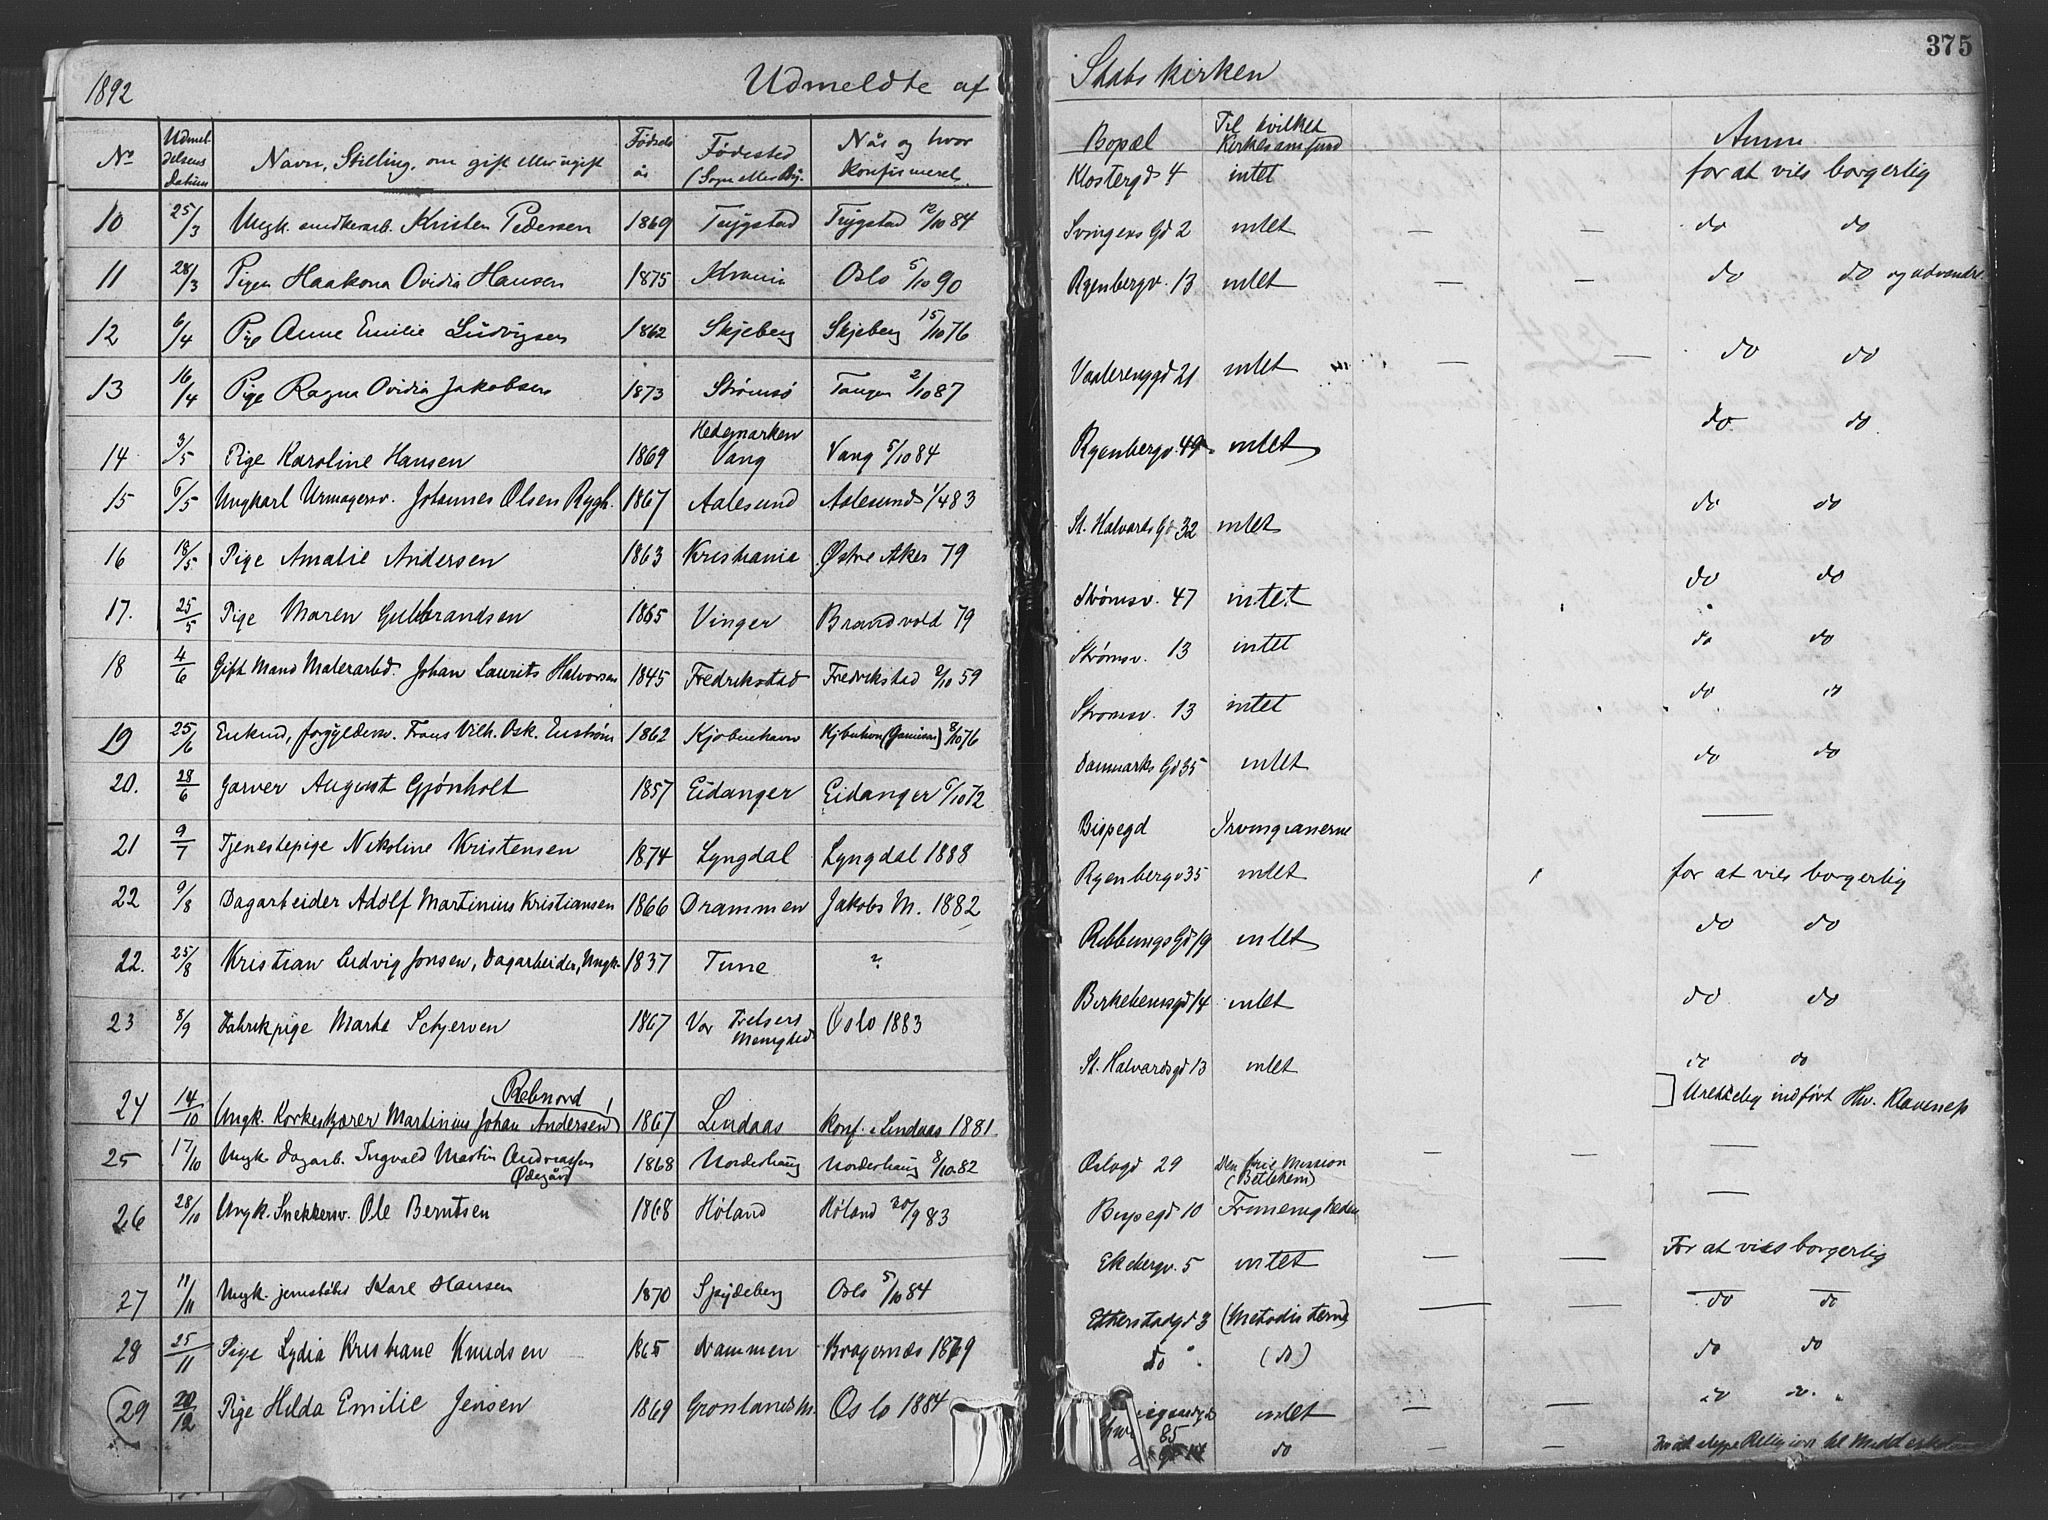 1892
Udmeldte af
No
Udmel-
delsens
datum
Navn, Stilling, om gift eller ugift
Fødsels
år
Fødested
(Sogn eller By.
Når og hvor
konfirmeret.
10 25/3 Ungk. snedkerarb. Kristen Pedersen 1869 Trygstad Trygstad 12/10 84
11 28/3 Pigen Haakona Ovidia Hansen 1875 Krania Oslo 5/10 90
12 6/4 Pige Anne Emilie Ludvigsen 1862 Skjeberg Skjeberg 15/10 76
13 16/4 Pige Ragna Ovidia Jakobsen 1873 Strømsø Tangen 2/10 87
Hedemarken
14 3/5 Pige Karoline Hansen 1869 Vang Vang 5/10 84
15 6/5 Ungkarl Urmagersv. Johannes Olsen Rygh. 1867 Aalesund Aalesund 1/4 83
16 18/5 Pige Amalie Andersen 1863 Kristiania Østre Aker 79
17. 25/5 Pige Maren Gulbrandsen 1865 Vinger Brandvold 79
18 4/6 Gift Mand Malerarbd. Johan Laurits Halvorsen 1845 Fredrikstad Fredrikstad 2/10 59
19 25/6 Enkmd, forgyldersv. Frans Vilh. Osk. Enstrøm 1862 Kjøbenhavn 8/10 76
20. 28/6 Garver August Gjønholt 1857 Eidanger Eidanger 6/10 72
21 9/7 Tjenestepige Nikoline Kristensen 1874 Lyngdal Lyngdal 1888
22 9/8 Dagarbeider Adolf Martinius Kristiansen 1866 Drammen Jakobs M. 1882
22. 25/8 Kristian Ludvig Jonsen, Dagarbeider, Ungk. 1837 Tune ?
23 8/9 Fabrikpige Marta Schjerven 1867 Vor Frelsers Oslo 1883
Menighed
Rebnord
24 14/10 Ungk. Korkeskjærer Martinius Johan Andersen 1867 Lindaas Konf. i Lindaas 1881
25 17/10 Ungk dagarb. Ingvald Martin Andreassen 1868 Norderhaug Norderhaug 8/10 82
Ødegård
26 28/10 Ungk. Snekkersv. Ole Berntsen 1868 Høland Høland 30/9 83
27 11/11 Ungk. jernstøber Karl Hansen 1870 Spydeberg Oslo 5/10 84
28 25/11 Pige Lydia Kristiane Knudsen 1865 Drammen Bragernæs 1879
29 20/12 Pige Hilda Emilie Jensen 1869 Grønlands M. Oslo 1884
375
Statskirken
Bopæl
Til hvilket
Kirkesamfund
Anm
Klostergd 4 intet for at vies borgerlig
Svingens Gd 2 intet — — do do
Ryenbergv. 13 intet — — do do og udvandre
Vaalerenggd 21 intet — — do do
Ryenbergv. 49 intet do do
St. Halvards Gd 32 intet do do
Strømsv. 47 intet do do
Strømsv. 13 intet do do
Strømsv. 13 intet do do
Danmarks Gd 35 intet do do
Bispegd Irvingianerne —
Ryenbergv 35 intet for at vies borgerlig
Rebbungs Gd 19 intet do do
Birkebeinergd 14 intet do do
St. Halvardsgd 13 intet do do
Urettelig indført Hv. Klaveness
Oslogd 29 Den frie Mission — — —
(Betlehem)
Bispegd 10 Frimenigheden —
Ekebergv. 5 intet — — For at vies borgerlig
Etterstadgd 3 (Metodisterne) — — do do
do (do) do do
85 intet — — do do
do — —